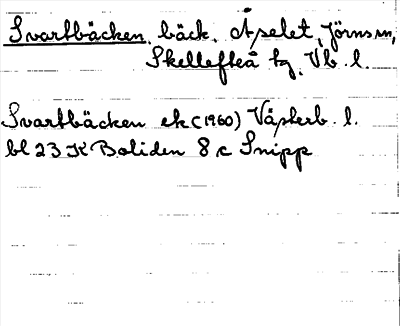 Svartbäcken, bäck, Åselet, Jörns sn,
Skellefteå tg, Vb. l.
Svartbäcken ek (1960) Västerb. l.
bl 23 K Boliden 8 c Snipp